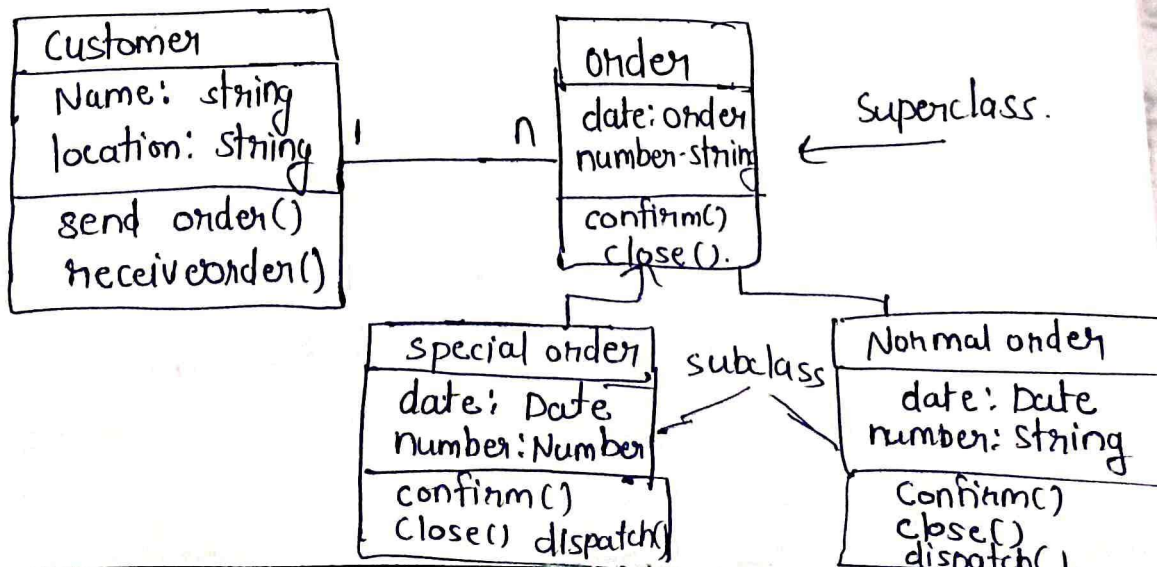 Customer
Name: string
location: string
send order()
receiveorder()
1
n
order
date: order
number-string
confirm()
close().
superclass.
special order
date: Date
number: Number
confirm()
Close() dispatch()
subclass
Normal order
date: Date
number: String
Confirm()
close()
dispatch()